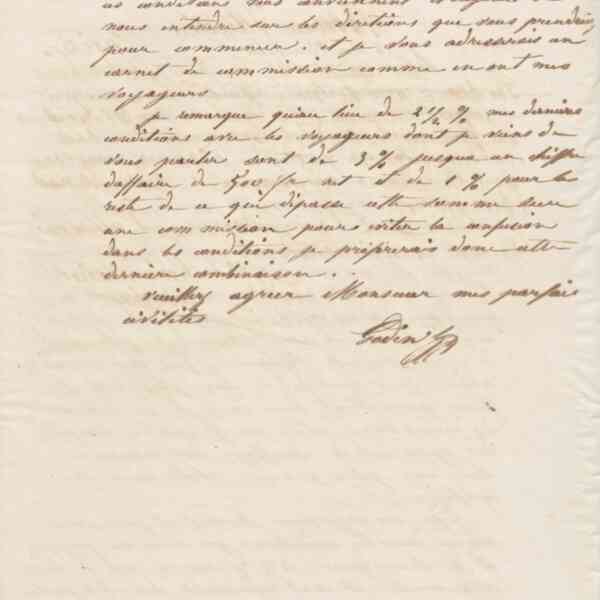 ces conditions vous conviennent
nous entendre sur les diretions que vous prendriez
pour commencer. et je vous adresserais un
carnet de commission comme en ont mes
voyageurs
je remarque qu'au lieu de 2 1/2 % mes dernieres
conditions avec les voyageurs dont je viens de
vous parler sont de 3 % jusqua un chiffre
daffaire de 500 fr net et de 1 % pour le
reste de ce qui dépasse cette somme sur
une commission pour eviter la confusion
dans les conditions je préfererais donc cette
derniere combinaison . .
veuillez agreer Monsieur mes parfaites
civilités
Godin